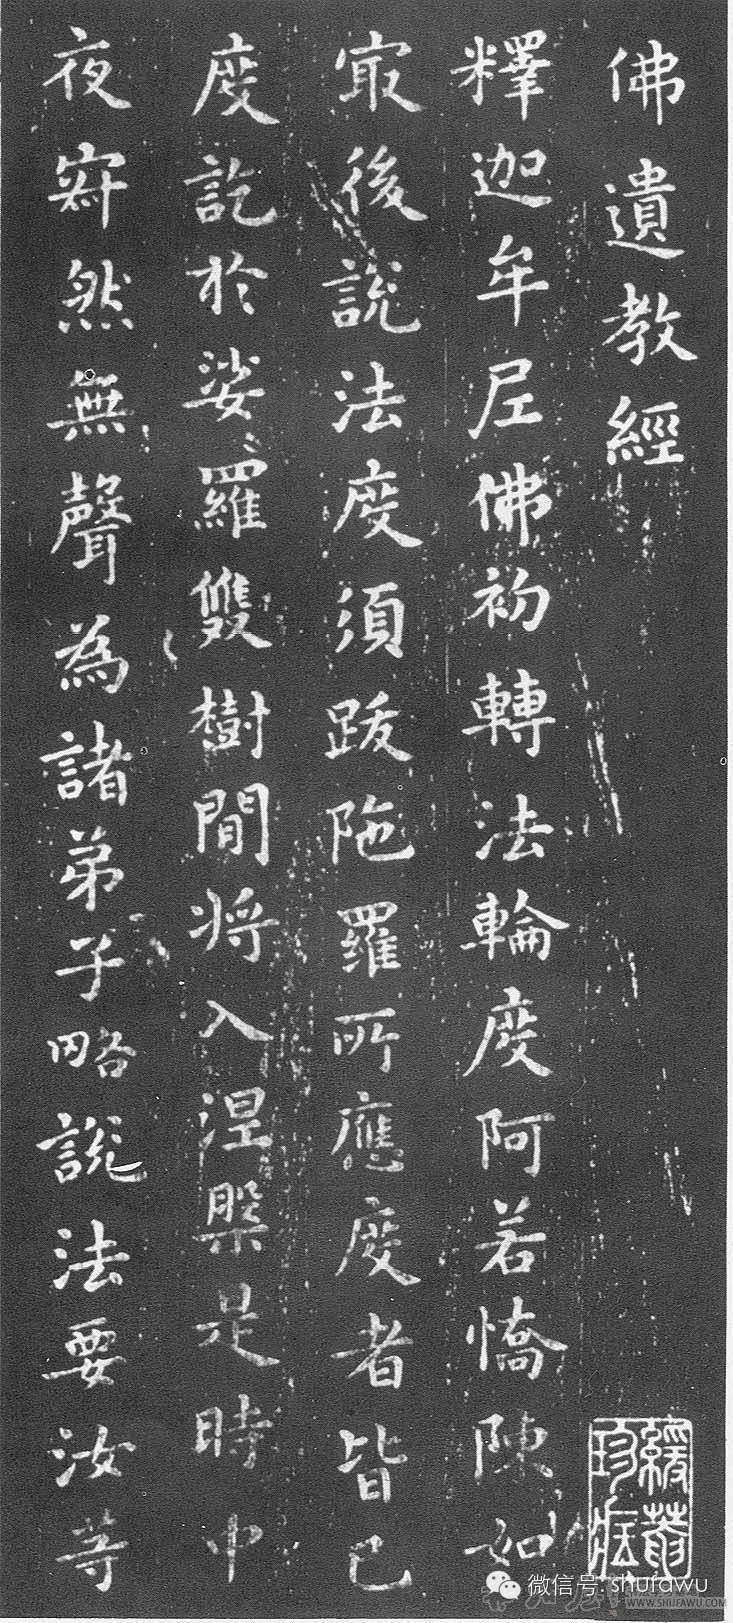 佛遺教經
釋迦牟尼佛初轉法輪度阿若憍陳如
冣後說法度須跋陁羅所應度者皆已
度訖於娑羅雙樹間將入涅槃是時中
夜寂然無聲為諸弟子略說法要汝等
微信号: shufawu
WWW.SHUFAWU.COM